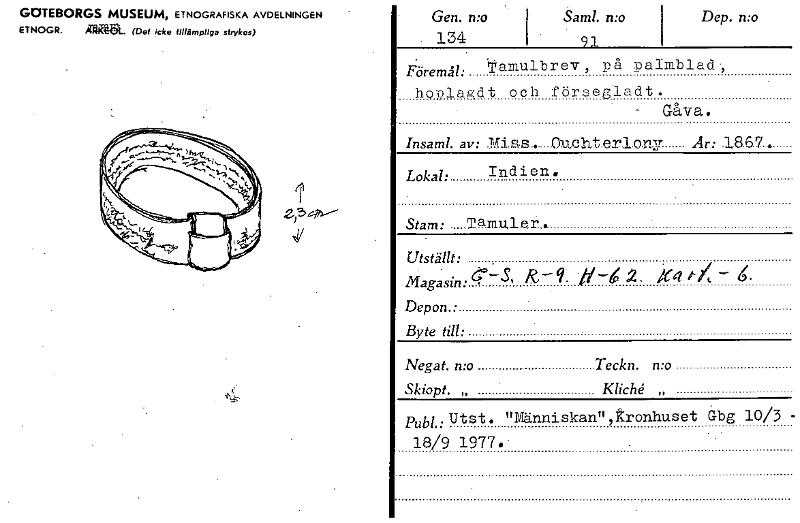 GÖTEBORGS MUSEUM, ETNOGRAFISKA AVDELNINGEN
ETNOGR. ARKEOL. (Det icke tillämpliga strykes)
2,3 cm
Gen. n:o Saml. n:o Dep. n:o
134 91
Föremål: Tamulbrev, på palmblad,
hoplagdt och förseglad t.
Gåva.
Insaml. av: Miss. Ouchterlony År: 1867.
Lokal: Indien.
Stam: Tamuler.
Utställt:
Magasin: G-S. R-9. H-62. Kart.-6.
Depon.:
Byte till:
Negat. n:o Teckn. n:o
Skiopt. „ Kliché „
Publ.: Utst. "Människan", Kronhuset Gbg 10/3 -
18/9 1977.